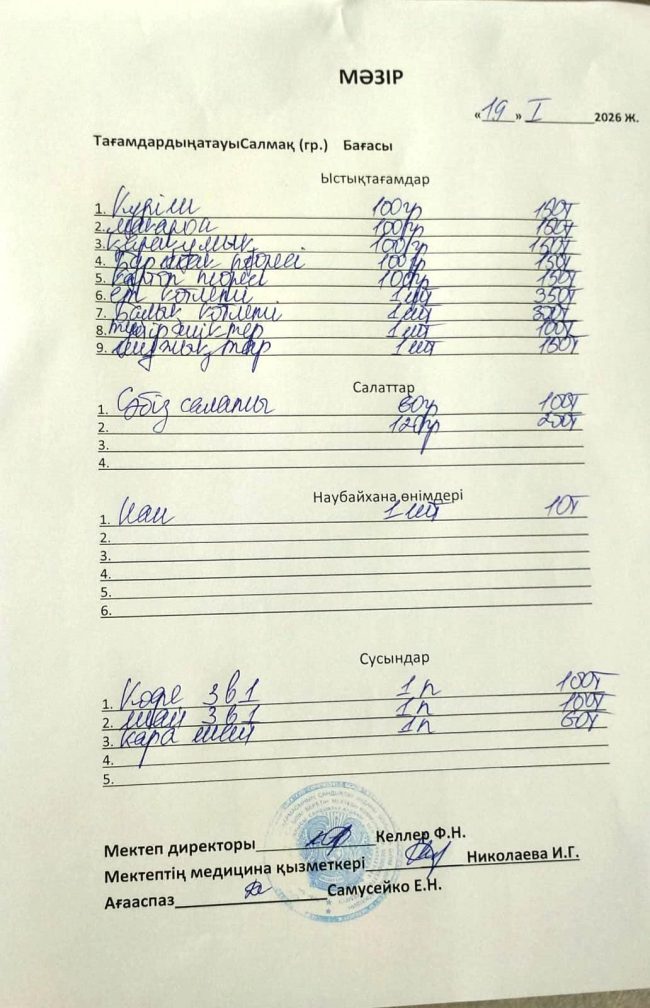 МӘЗІР
«19» I 2026 ж.
ТағамдардыңатауыСалмақ (гр.) Бағасы
Ыстықтағамдар
1. Күріш 100гр 150т
2. макарон 100гр 150т
3. қарақұмық 100гр 150т
4. пюресі 100гр 150т
5. картоп пюресі 100гр 150т
6. ет котлеті 1шт 350т
7. балық котлеті 1шт
8. 1шт 100т
9. 1шт 150т
Салаттар
1. Сәбіз салаты 60гр 100т
2. 120гр 200т
3.
4.
Наубайхана өнімдері
1. Нан 1шт 10т
2.
3.
4.
5.
6.
Сусындар
1. Кофе 3в1 1п 100т
2. шай 3в1 1п 100т
3. қара шай 1п 60т
4.
5.
Мектеп директоры Келлер Ф.Н.
Мектептің медицина қызметкері Николаева И.Г.
Ағааспаз Самусейко Е.Н.